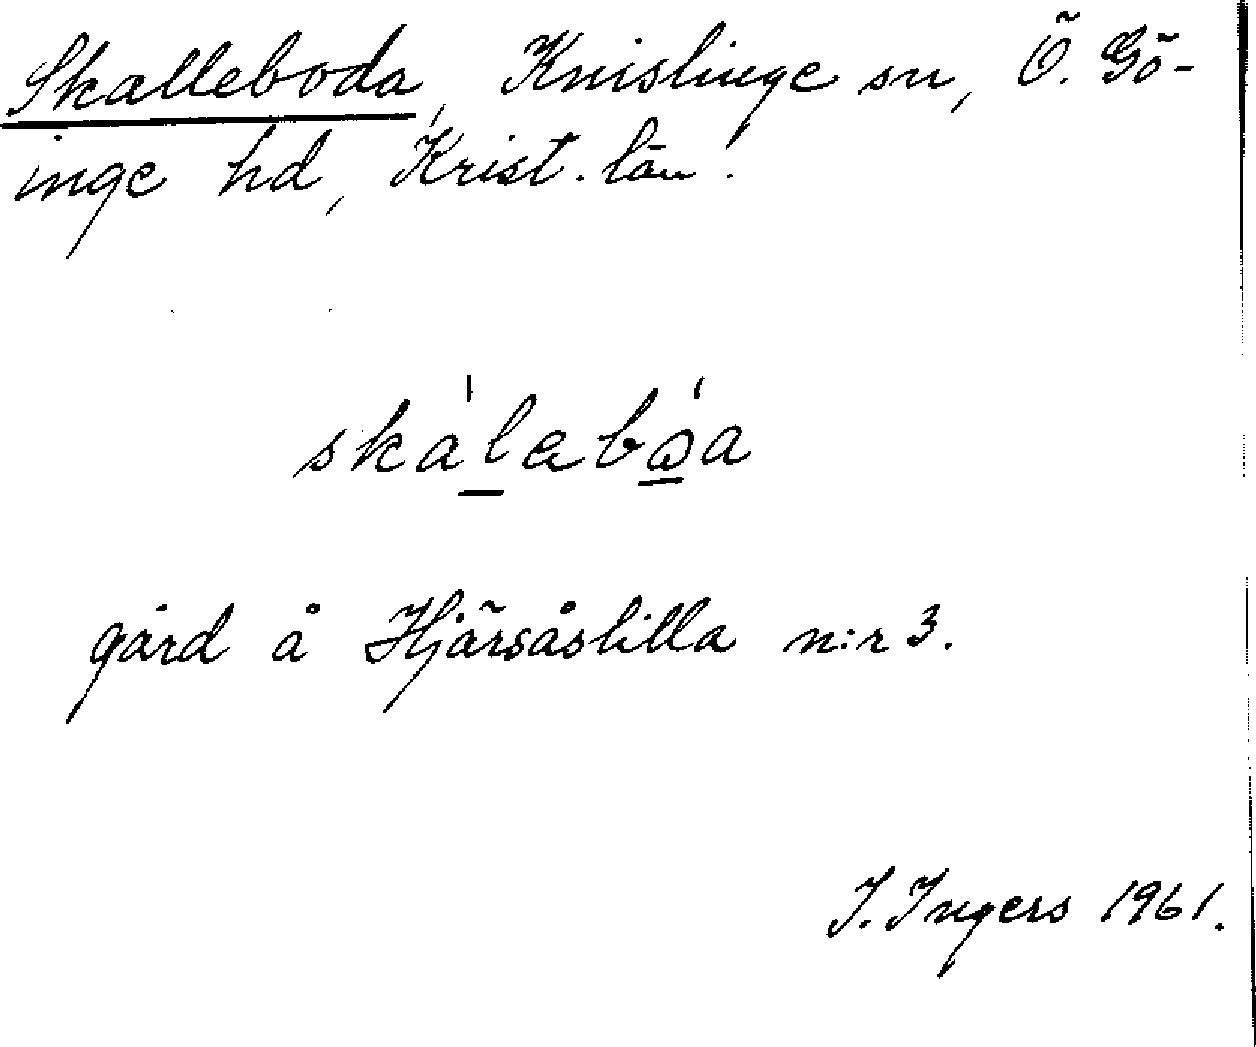 Skalleboda, Knislinge sn, Ö. Gö-
inge hd, Krist. län.
gård å Hjärsåslilla n:r 3.
I. Ingers 1961.